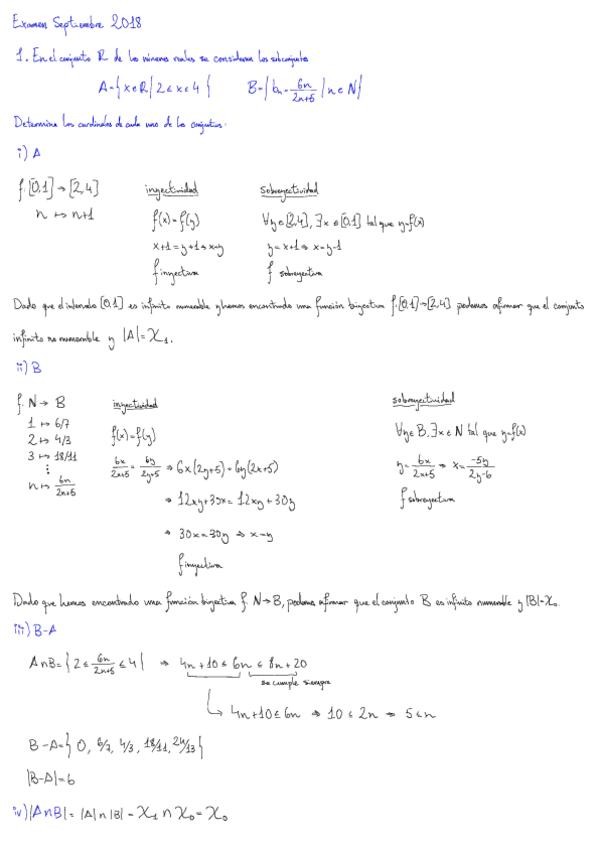 Examen Septiembre 2018
1. En el conjunto R de los números reales se consideran los subconjuntos
A={x∈R | 2≤x≤4} B={bn=6n/(2n+5) | n∈N}
Determina los cardinales de cada uno de los conjuntos.
i) A
f: [0,1]→[2,4]
n ↦ n+1
inyectividad
f(x)=f(y)
x+1=y+1⇒x=y
f inyectiva
sobreyectividad
∀y∈[2,4], ∃x∈[0,1] tal que y=f(x)
y=x+1⇒x=y-1
f sobreyectiva
Dado que el intervalo [0,1] es infinito numerable y hemos encontrado una función biyectiva f:[0,1]→[2,4] podemos afirmar que el conjunto
infinito no numerable y |A|=ℵ₁.
ii) B
f: N→ B
1 ↦ 6/7
2 ↦ 4/3
3 ↦ 18/11
⋮
n ↦ 6n/(2n+5)
inyectividad
f(x)=f(y)
6x/(2x+5)=6y/(2y+5) ⇒ 6x(2y+5)=6y(2x+5)
⇒ 12xy+30x=12xy+30y
⇒ 30x=30y ⇒ x=y
f inyectiva
sobreyectividad
∀y∈B, ∃x∈N tal que y=f(x)
y=6x/(2x+5) ⇒ x=-5y/(2y-6)
f sobreyectiva
Dado que hemos encontrado una función biyectiva f: N→B, podemos afirmar que el conjunto B es infinito numerable y |B|=ℵ₀.
iii) B-A
A∩B={2≤6n/(2n+5)≤4} ⇒ 4n+10≤6n≤8n+20
se cumple siempre
4n+10≤6n ⇒ 10≤2n ⇒ 5≤n
B-A={0, 6/7, 4/3, 18/11, 24/13}
|B-A|=6
iv) |A∩B|= |A|∩|B| = ℵ₁ ∩ ℵ₀ = ℵ₀